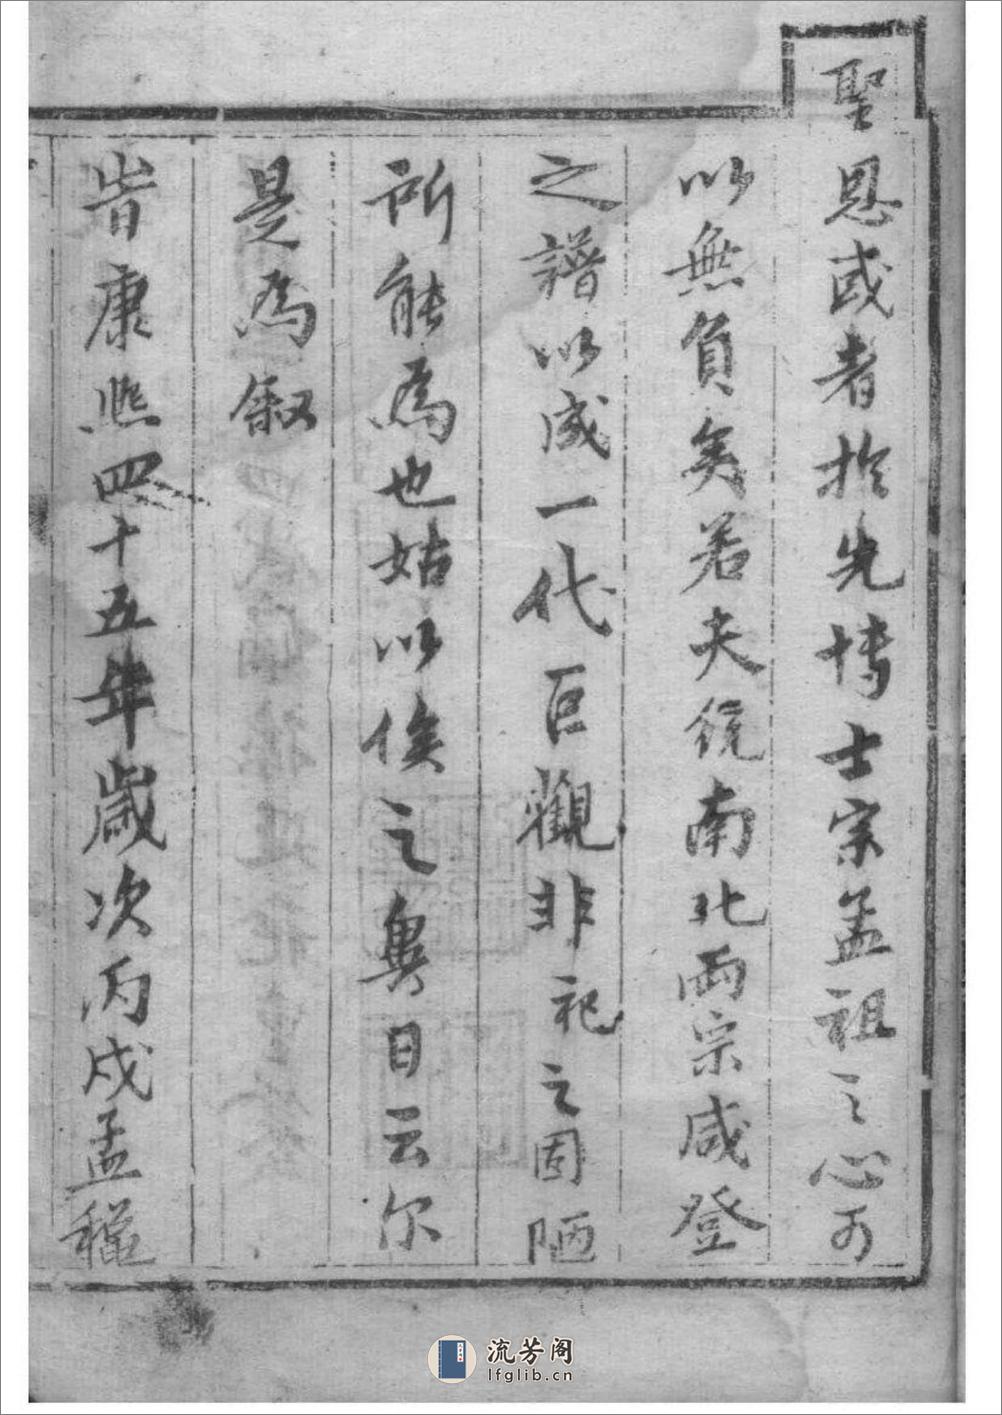 聖恩或者於先博士宗孟祖之心可
以無負矣若夫統南北兩宗咸登
之譜以成一代巨觀非祀之固陋
所能為也姑以俟之異日云尔
是為叙
旹康熙四十五年歲次丙戌孟穐
流芳阁
lfglib.cn